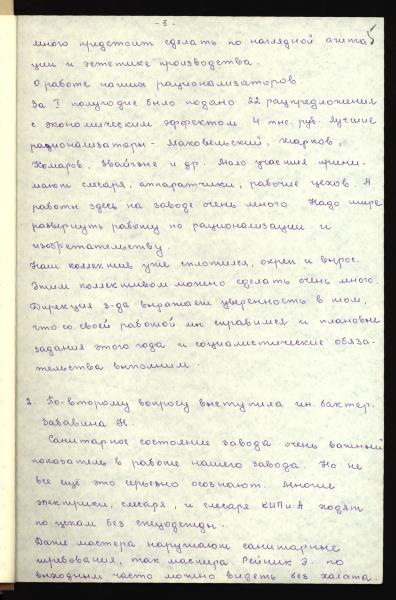 - 5 -
5
много предстоит сделать по наглядной агита
ции и эстетике производства.
О работе наших рационализаторов.
За I полугодие было подано 22 рацпредложения
с экономическим эффектом 4 тыс. руб. Лучшие
рационализаторы - Маховельский, Жарков,
Комаров, Звайгзне и др. Мало участия прини-
мают слесаря, аппаратчики, рабочие цехов. А
работы здесь на заводе очень много. Надо шире
развернуть работу по рационализации и
изобретательству.
Наш коллектив уже сплотился, окреп и вырос.
Этим коллективом можно сделать очень много.
Дирекция з-да выражает уверенность в том,
что со своей работой мы справимся и плановые
задания этого года и социалистические обяза-
тельства выполним.
2. По второму вопросу выступила ин. бактер.
Забавина Н.
Санитарное состояние завода очень важный
показатель в работе нашего завода. Но не
все ещё это серьезно осознают. Многие
электрики, слесаря, и слесаря КИПиА ходят
по цехам без спецодежды.
Даже мастера нарушают санитарные
требования, так мастера Рейник Э. по
выходным часто можно видеть без халата.